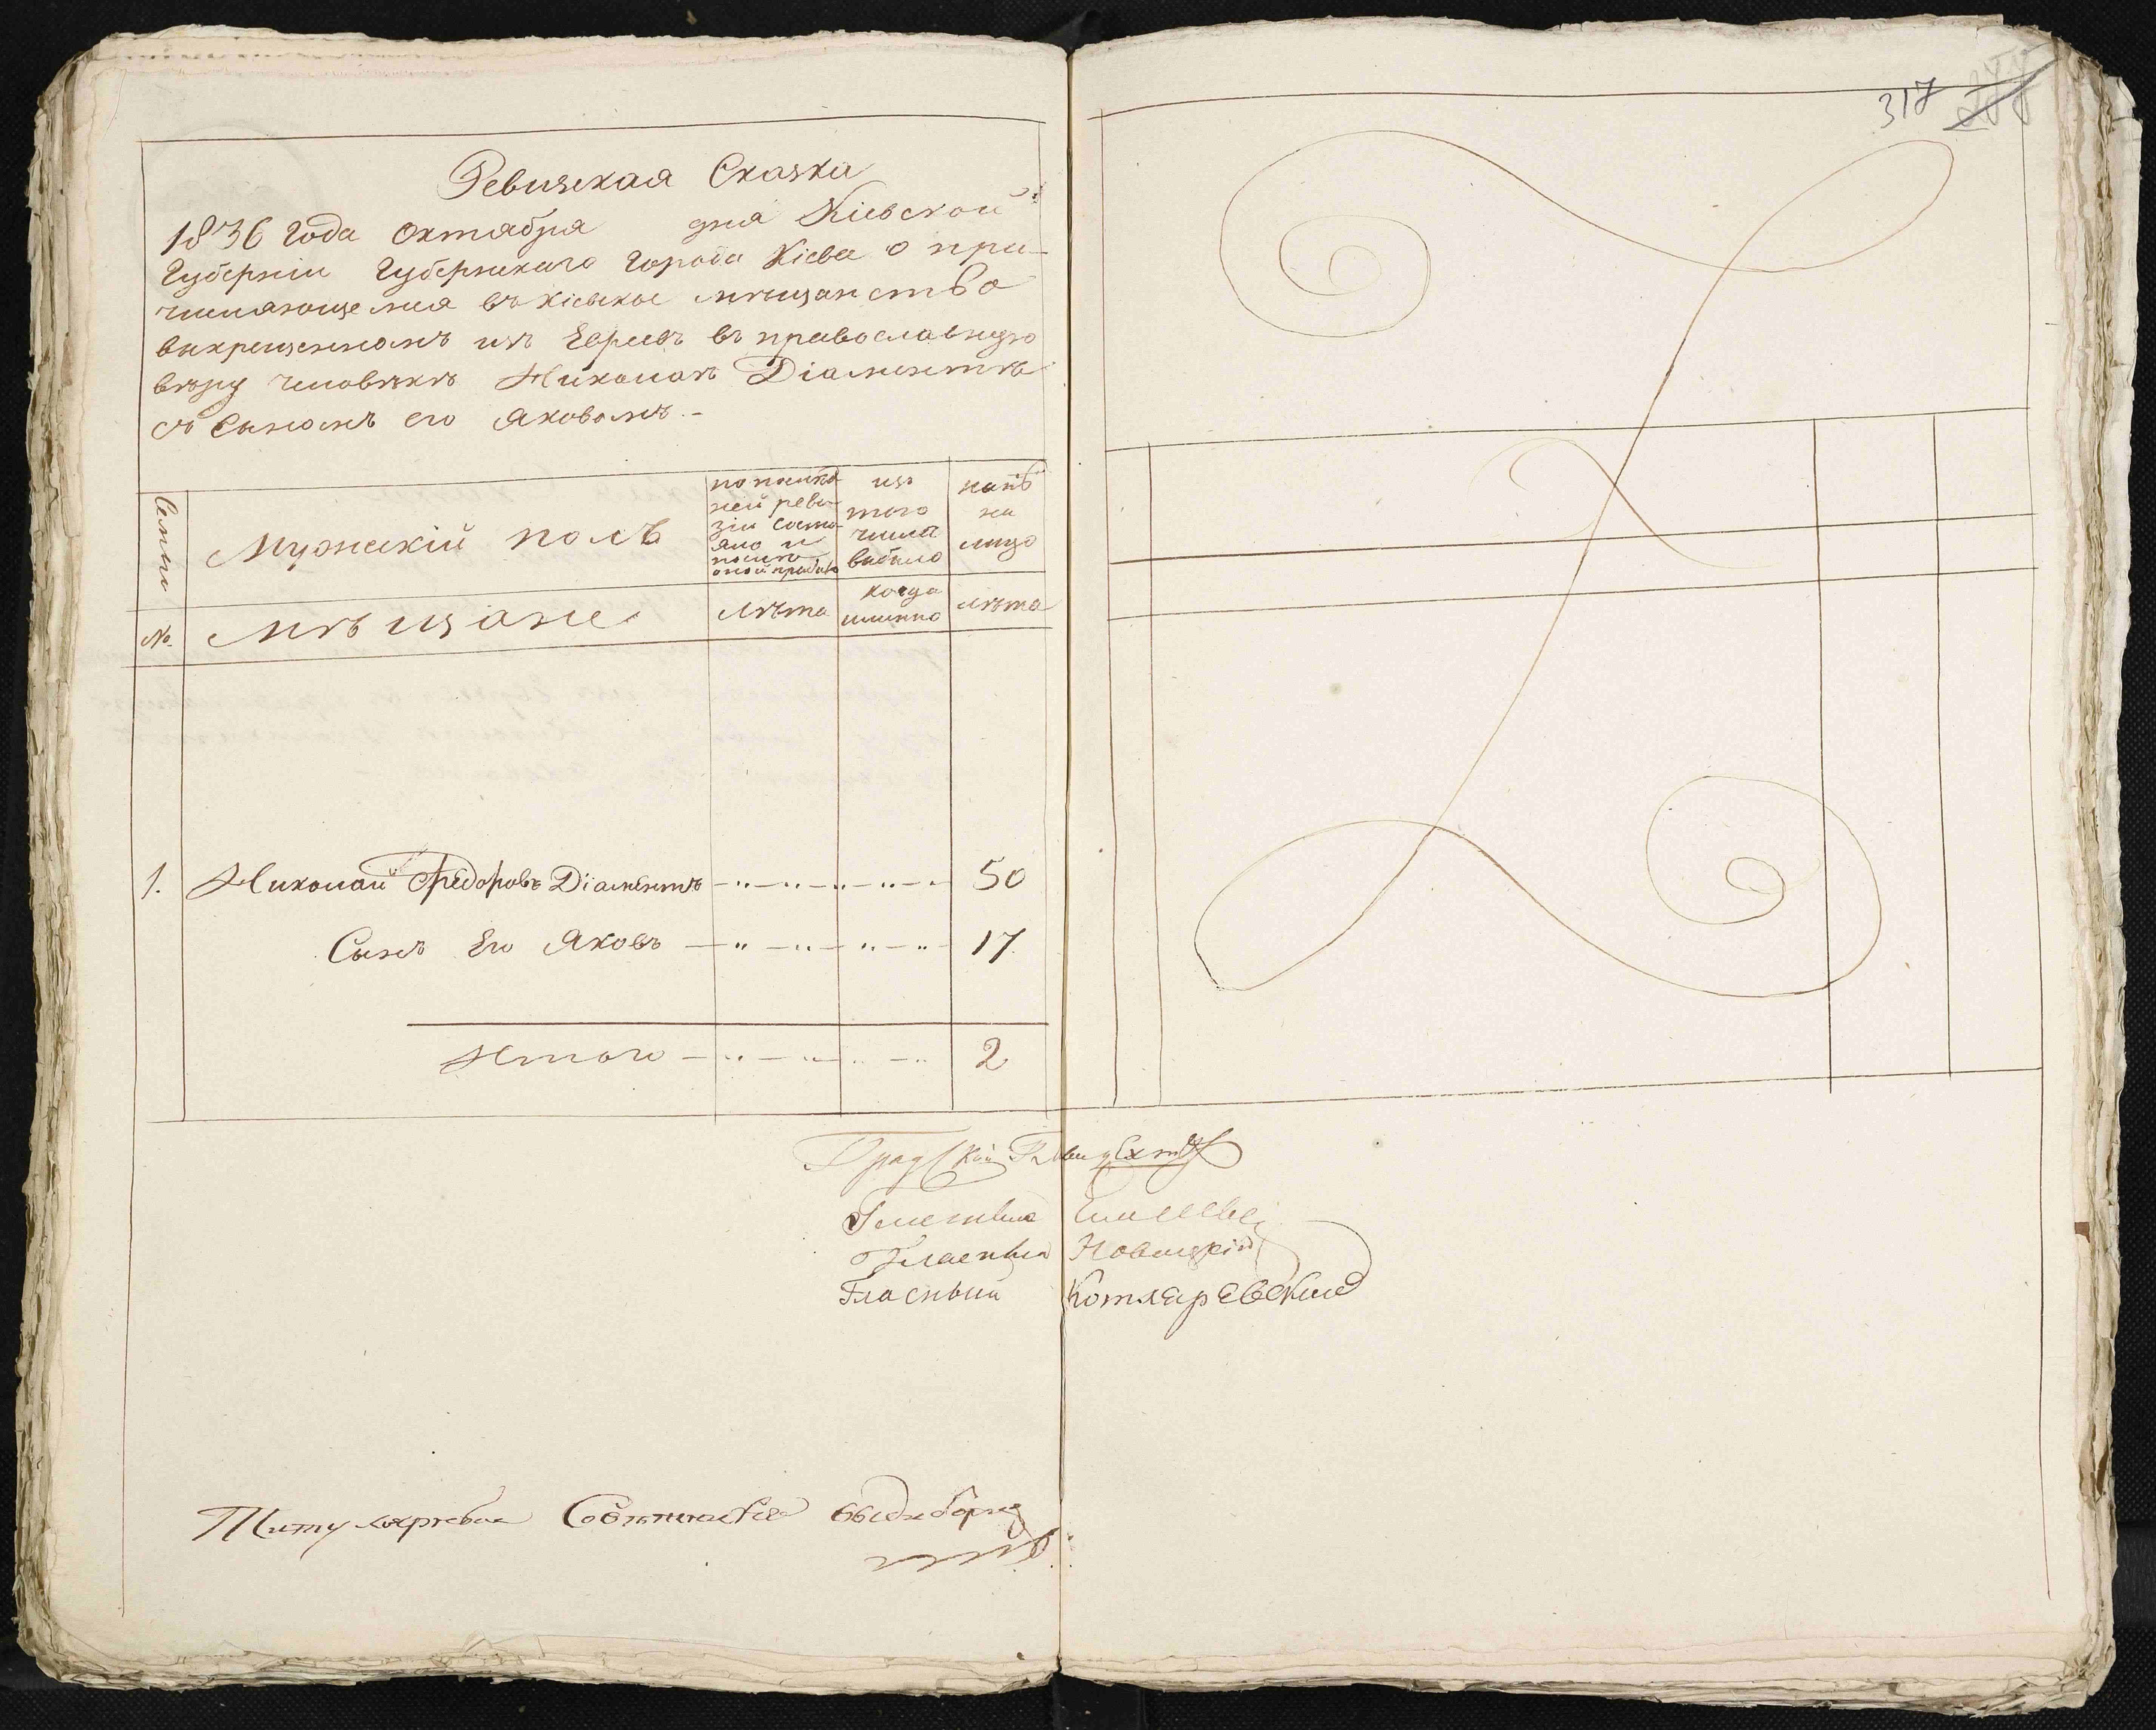 317
Ревизская Сказка
1836 года октября дня Кіевской
Губерніи Губернскаго города Кіева о при-
числяющемся въ кіевское мѣщанство
выкрещенномъ изъ Евреевъ въ православную
вѣру человѣкѣ Николаѣ Діаментѣ
съ Сыномъ его Яковомъ.-
Семьи
Мужескій полъ
по послѣд-
ней реви-
зіи состо-
яло и
послѣ
оной прибыло
изъ
того
числа
выбыло
нынѣ
на
лицо
№.
мѣщане
лѣта
когда
именно
лѣта
1. Николай Федоровъ Діаментъ 50
Сынъ Его Яковъ 17
Итого 2
Градской Глава
Гласный
Гласный Новицкій
Гласный Котляревский
Титулярный Совѣтникъ